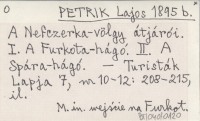 O
PETRIK Lajos 1895 b.
A Nefczerka-völgy átjárói.
I. A Furkota-hágó. II. A
Spára-hágó. — Turisták
Lapja 7, nr 10-12: 205-215,
il.
M. in. wejście na Furkot.